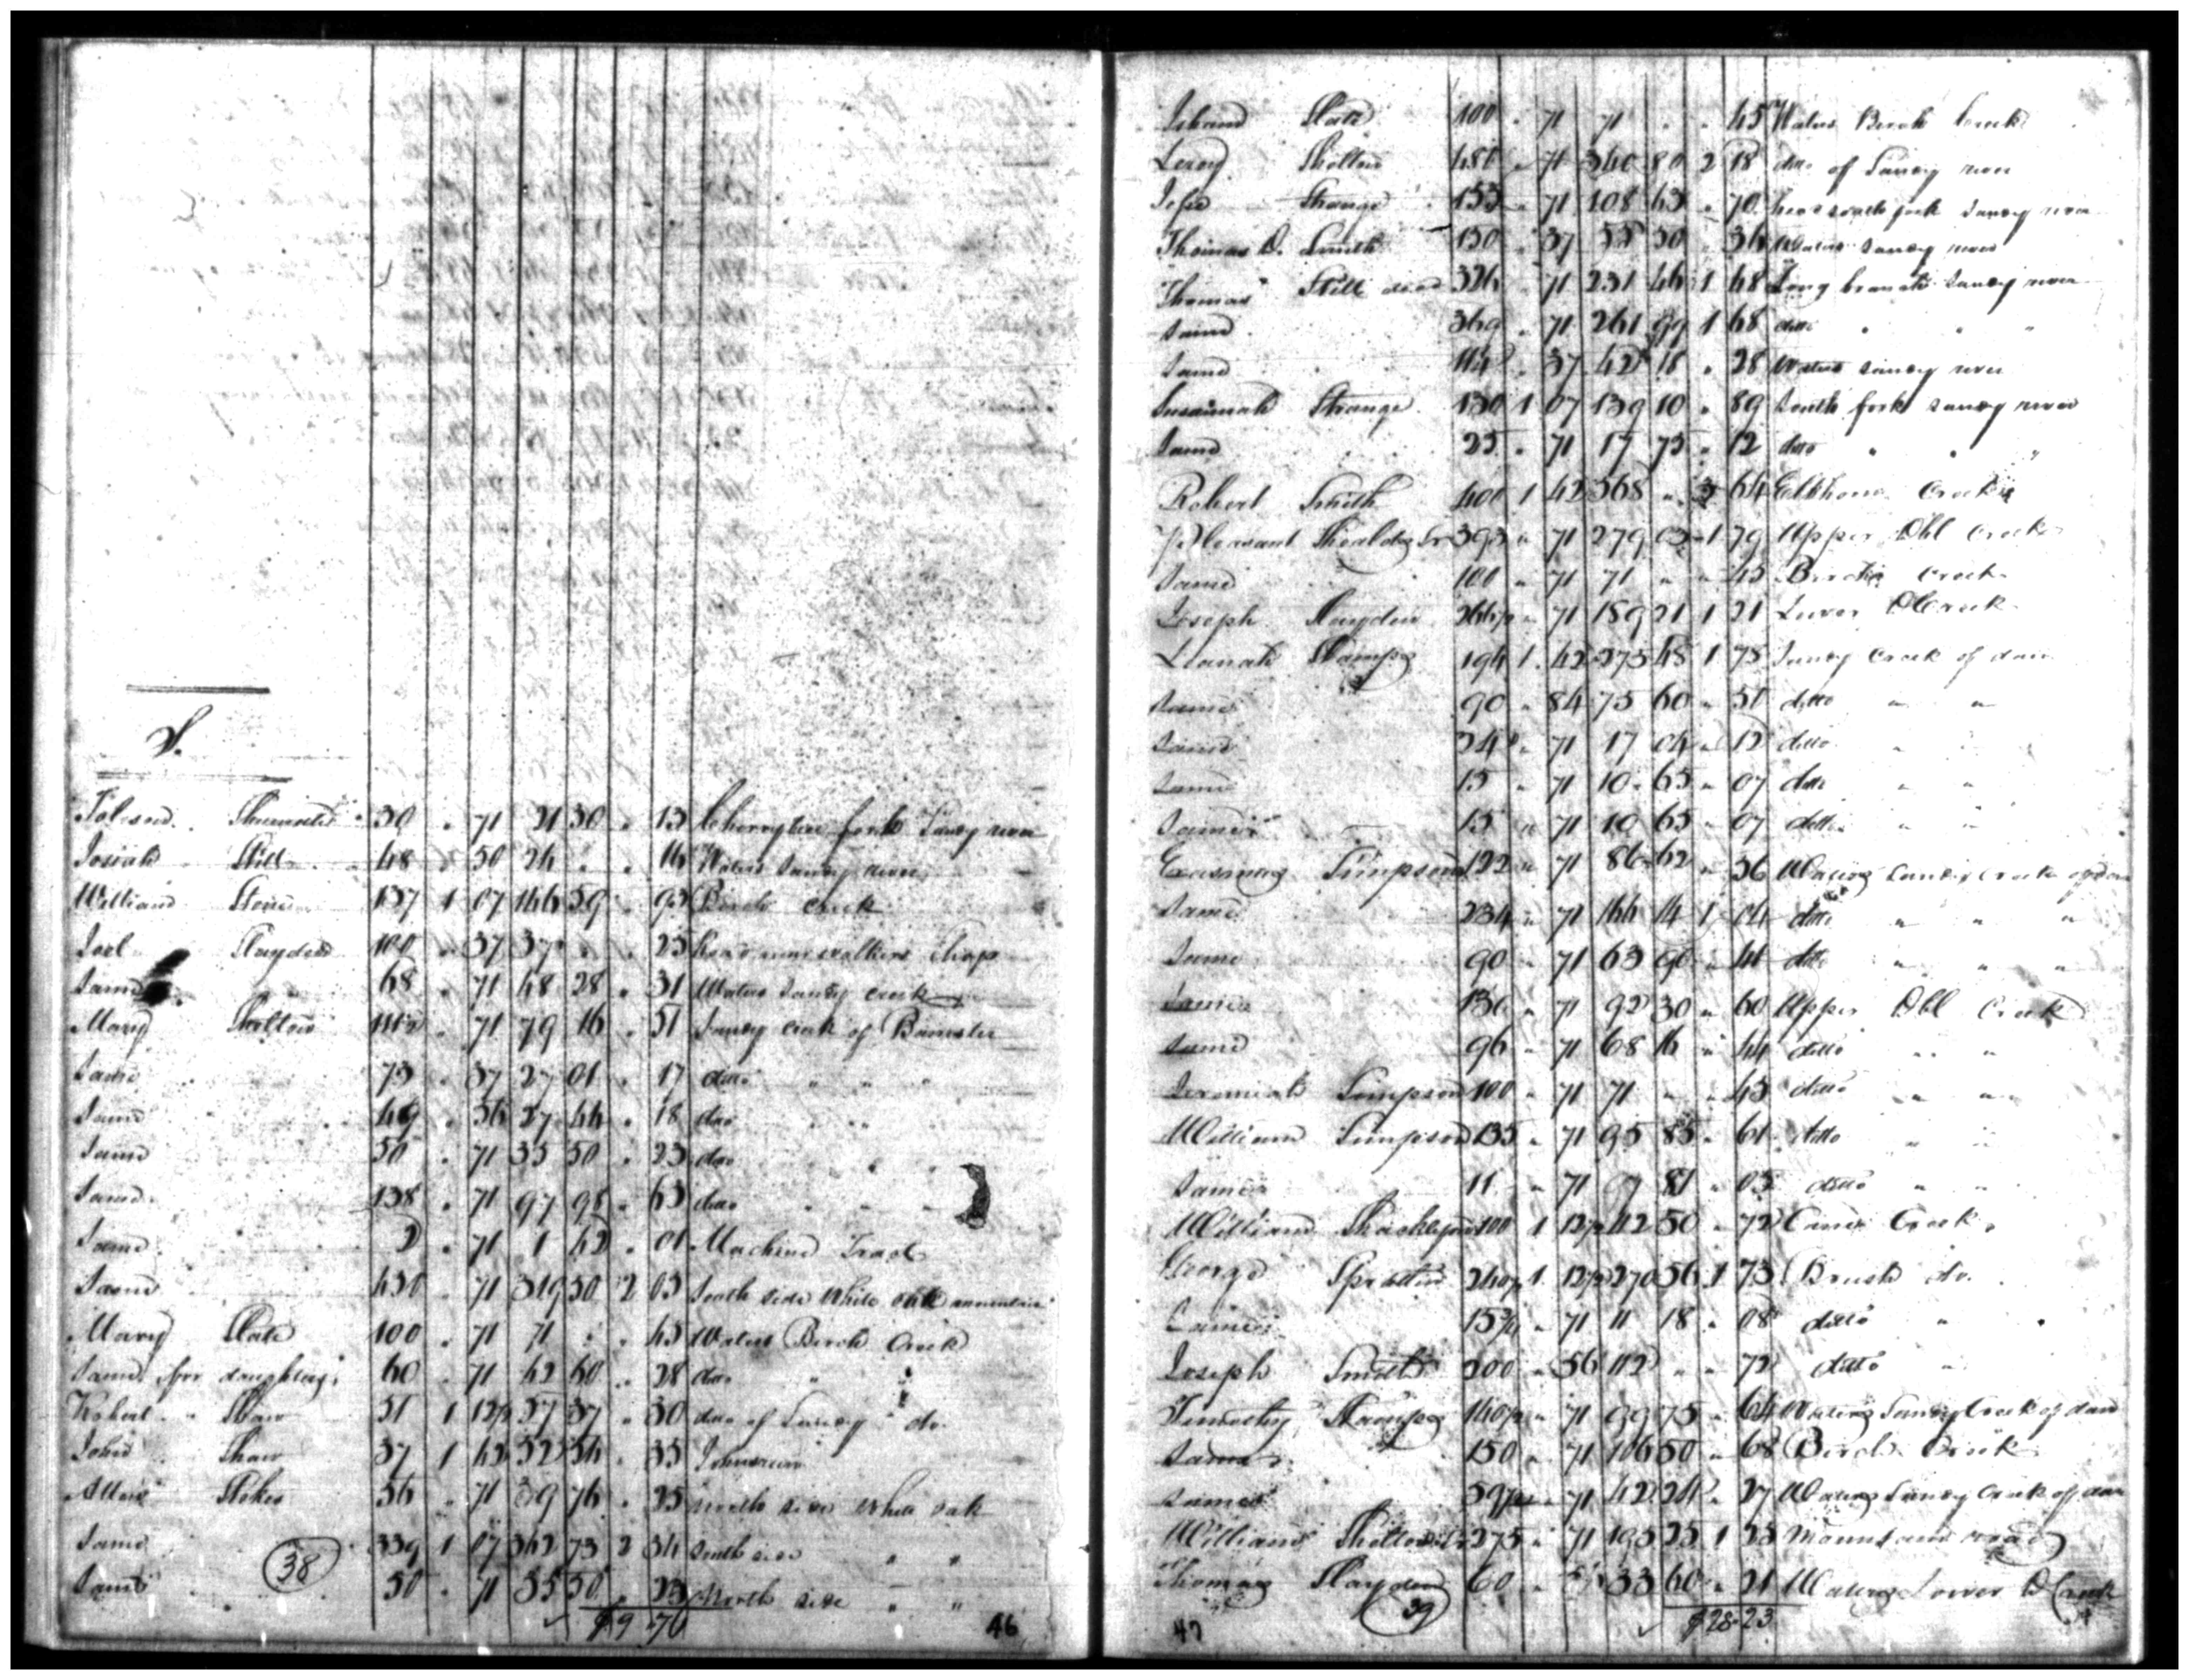 S.
30 " 71 21 30 " 13 Cherrytree fork Sandy river
Josiah Still 48 " 50 24 " " 16 Waters Sandy river
William Stone 137 1 07 146 59 " 93 Birch Creek
Joel Slayden 100 " 37 37 " " 23 near walkers Shop
Same 68 " 71 48 28 " 31 Waters Sandy Creek
Mary Shelton 111½ " 71 79 16 " 51 Sandy Creek of Banister
Same 73 " 37 27 01 " 17 ditto " " "
Same 49 " 56 27 44 " 18 do " "
Same 50 " 71 35 50 " 23 do "
Same 138 " 71 97 98 " 63 ditto " "
Same 2 " 71 1 42 " 01 Machine Tract
Same 450 " 71 319 50 2 05 South side White Oak mountain
Mary Slate 100 " 71 71 " " 45 Waters Birch Creek
Same for daughters 60 " 71 42 60 " 28 do " "
Robert Shaw 51 1 12½ 57 37 " 30 do of Sandy do.
John Shaw 37 1 42 52 54 " 35
Allen Stokes 56 " 71 39 76 " 25 North side White oak
Same 339 1 07 362 73 2 34 South side " "
Same 50 " 71 35 50 " 23 North side " "
38
$9 70
46
Slate 100 " 71 71 " " 45 Waters Birch Creek
Leroy Shelton 480 " 71 340 80 2 18 ditto of Sandy river
Jesse Strange 153 " 71 108 63 " 70 south fork Sandy river
Thomas D. Smith 150 " 37 55 50 " 36 Waters Sandy river
Thomas Still decd 326 " 71 231 46 1 48 Long branch Sandy river
Same 369 " 71 261 99 1 68 ditto " " "
Same 114 " 37 42 18 " 28 Waters Sandy river
Susannah Strange 130 1 07 139 10 " 89 South fork Sandy river
Same 25 " 71 17 75 " 12 ditto " " "
Robert Smith 400 1 42 568 " 3 64 Elkhorn Creek
Pleasant Shields Sr 393 " 71 279 03 1 79 Upper Dbl Creek
Same 100 " 71 71 " " 45 Birch Creek
Joseph Slayden 266½ " 71 189 21 1 21 Lower D Creek
Stamps 194 1 42 275 48 1 78 Sandy Creek of dan
Same 90 " 84 75 60 " 50 ditto " "
Same 24 " 71 17 04 " 12 ditto " "
Same 15 " 71 10 65 " 07 ditto " "
Same 15 " 71 10 65 " 07 ditto " "
Erasmus Simpson 122 " 71 86 62 " 56 Waters Sandy Creek of dan
Same 234 " 71 166 14 1 04 ditto " " "
Same 90 " 71 63 90 " 41 ditto " " "
Same 130 " 71 92 30 " 60 Upper Dbl Creek
Same 96 " 71 68 16 " 44 ditto " "
Jeremiah Simpson 100 " 71 71 " " 45 ditto " "
William Simpson 135 " 71 95 85 " 61 ditto " "
Same 11 " 71 07 81 " 05 ditto " "
William Shackleford 100 1 12½ 112 50 " 72 Cane Creek
George 240½ 1 12½ 270 56 1 73 Brush do.
Same 15¾ " 71 11 18 " 08 ditto " "
Joseph Smith 200 " 56 112 " " 72 ditto "
Timothy Stamps 140½ " 71 99 75 " 64 Waters Sandy Creek of dan
Same 150 " 71 106 50 " 68 Birch Creek
Same 59½ " 71 42 24 " 27 Waters Sandy Creek of dan
William Shelton Sr 275 " 71 195 25 1 25 Mountain road
Thomas Slayden 60 " 33 60 " 21 Waters Lower D Creek
39
47
$28 23